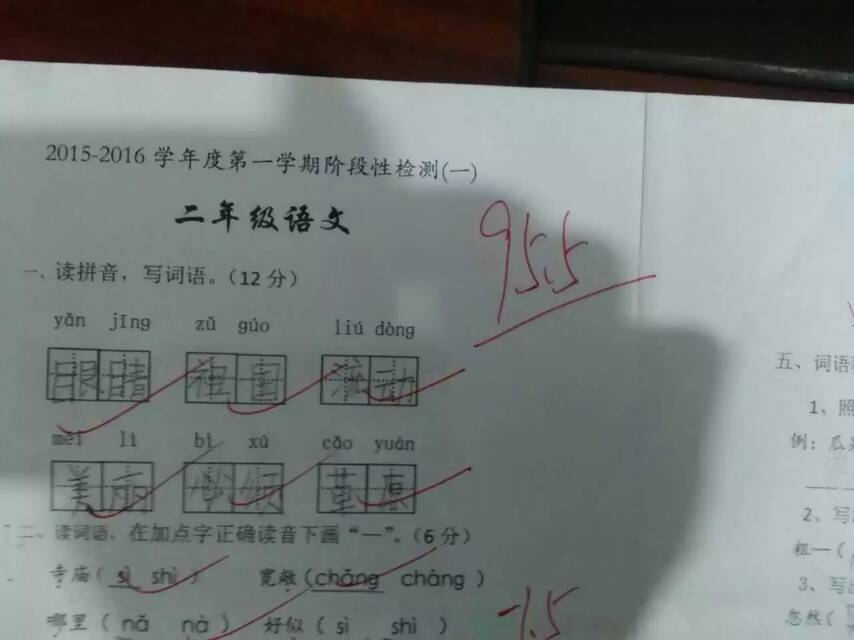 2015-2016 学年度第一学期阶段性检测(一)
二年级语文
95.5
一、读拼音，写词语。（12 分）
yǎn jīng zǔ guó liú dòng
眼睛 祖国 流动
měi lì bǐ xū cǎo yuán
美丽 草原
二、读词语，在加点字正确读音下画“一”。（6 分）
寺庙（ sì shì ） 宽敞（chǎng chàng ）
哪里（ nǎ nà ） 好似（ sì shì ）
-1.5
五、词语
1、照
例：瓜
2、写
粗—（
3、写出
忽然（